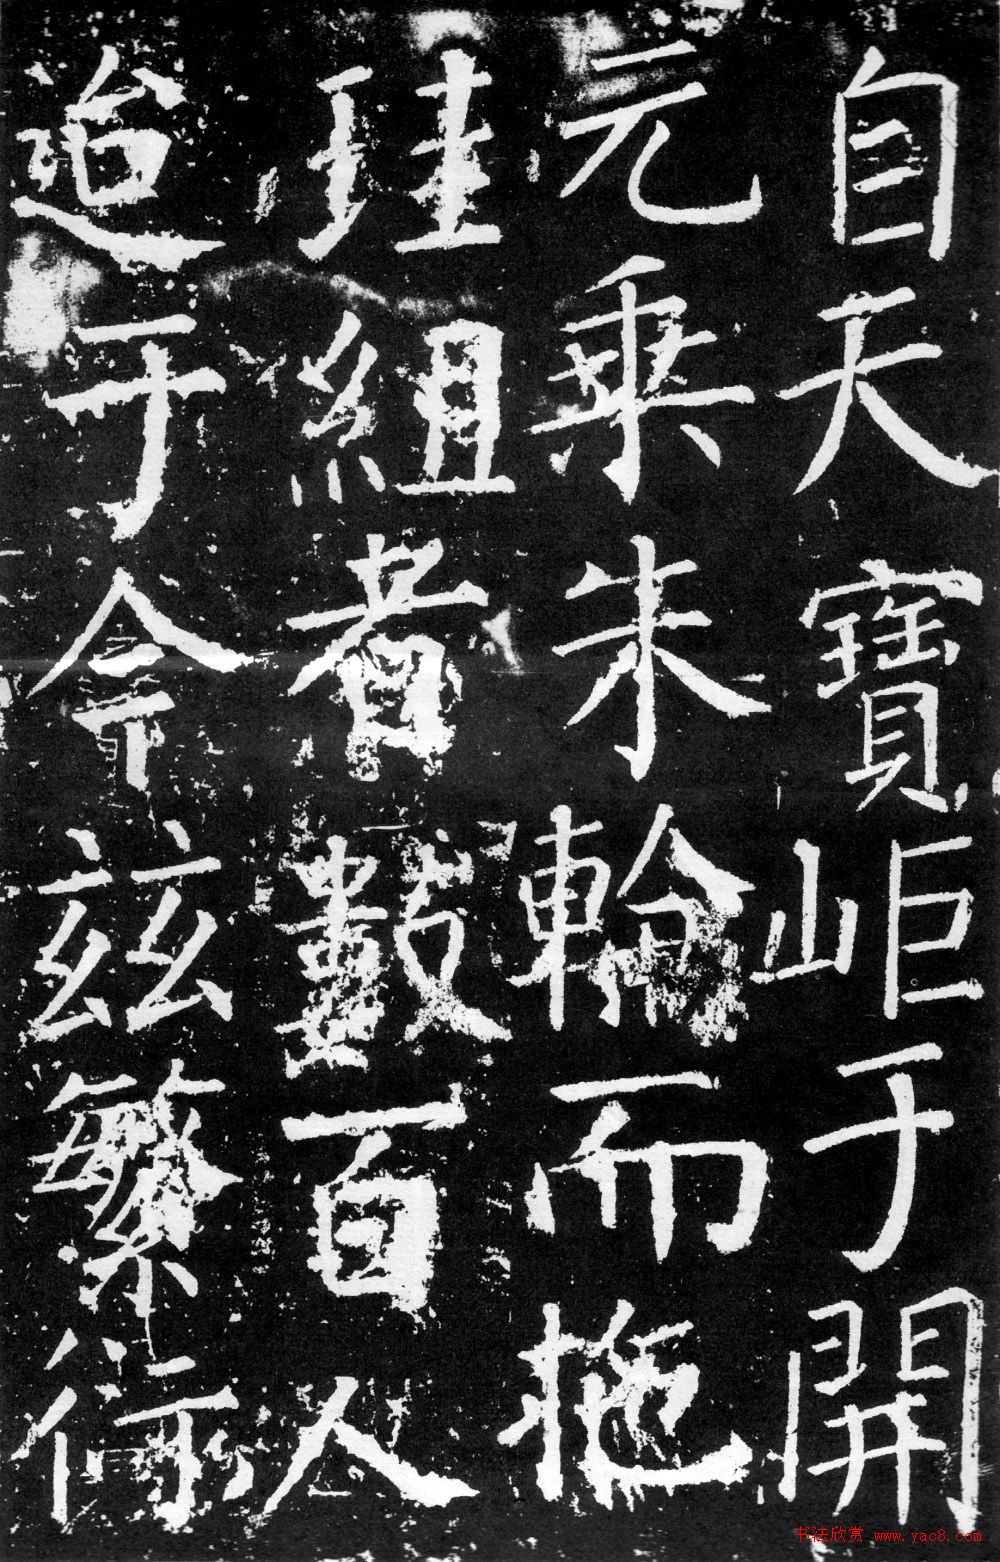 自天寶岠于開
元乘朱輪而拖
珪組者數百人
迨于今茲繁衍
书法欣赏 www.yac8.com